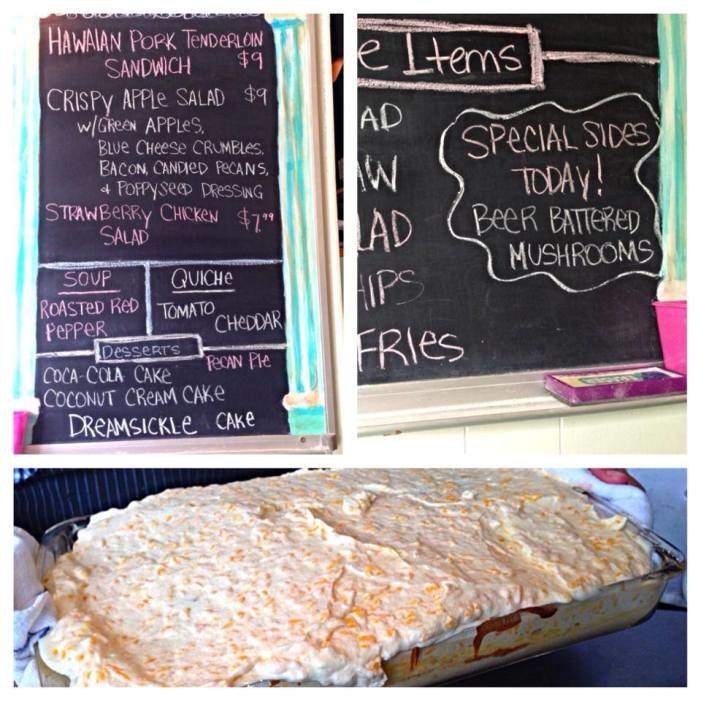 HAWAIAN PORK TENDERLOIN
SANDWICH $9
CRISPY APPLE SALAD $9
W/GREEN APPLES,
BLUE CHEESE CRUMBLES,
BACON, CANDIED PECANS,
& POPPYSEED DRESSING
STRAWBERRY CHICKEN $7.99
SALAD
SOUP
ROASTED RED
PEPPER
QUICHE
TOMATO
CHEDDAR
DESSERTS
PECAN PIE
COCA-COLA CAKE
COCONUT CREAM CAKE
DREAMSICKLE CAKE
e Items
AD
AW
LAD
HIPS
FRIES
SPECIAL SIDES
TODAY!
BEER BATTERED
MUSHROOMS